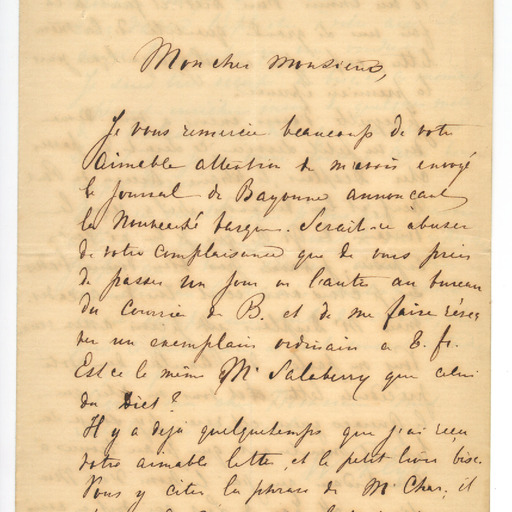 Mon cher monsieur,
Je vous remercie beaucoup de votre
aimable attention de m'avoir envoyé
le Journal de Bayonne annonçant
la Nouveauté basque. Serait-ce abuser
de votre complaisance que de vous prier
de passer un jour ou l'autre au bureau
du Courrier de B. et de me faire réser
ver un exemplaire ordinaire a 6. fr.
Est ce le même Mr Salaberry que celui
du Dict?
Il y a déjà quelquetemps que j'ai reçu
votre aimable lettre, et le petit livre bisc.
Vous y citez la phrase de Mr Char; il